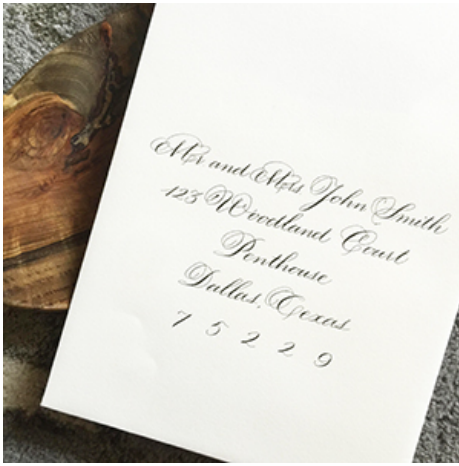 Mr and Mrs John Smith
123 Woodland Court
Penthouse
Dallas, Texas
7 5 2 2 9